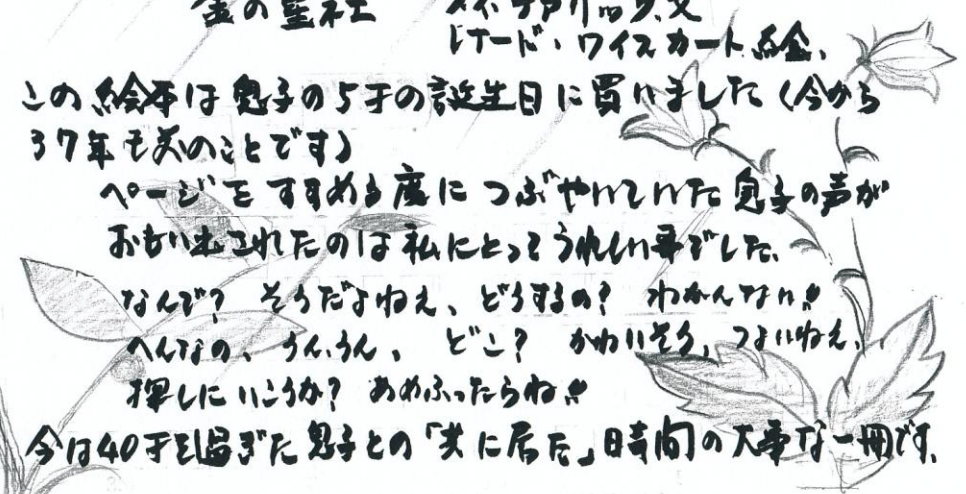 金の星社 メイ・ゲアリック、文
レナード・ワイスガード、絵
この絵本は息子の5才の誕生日に買いました(今から
37年も前のことです)
ページをすすめる度につぶやいていた息子の声が
おもい出されたのは私にとってうれしい事でした、
なんで? そうだよねえ、どうするの? わかんない!!
へんなの、うん、うん、 どこ? かわいそう、つよいねえ、
探しにいこうか? あめふったらね!!
今は40才を過ぎた息子との「共に居た」時間の大事な一冊です、